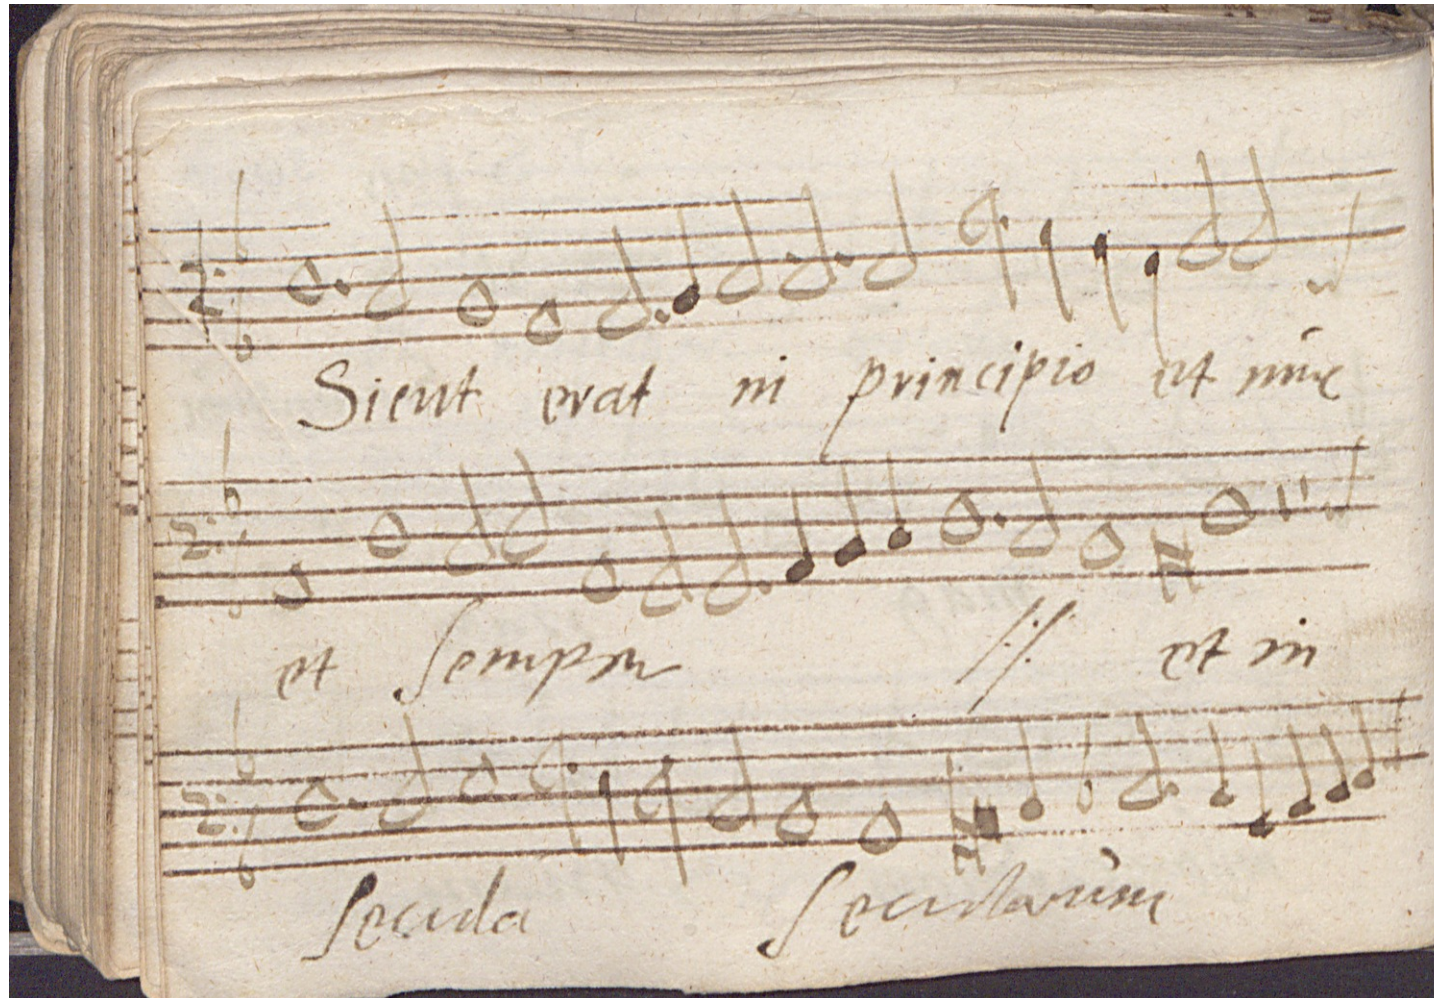 Sicut erat in principio et nūc
et semper :/: et in
secula seculorum